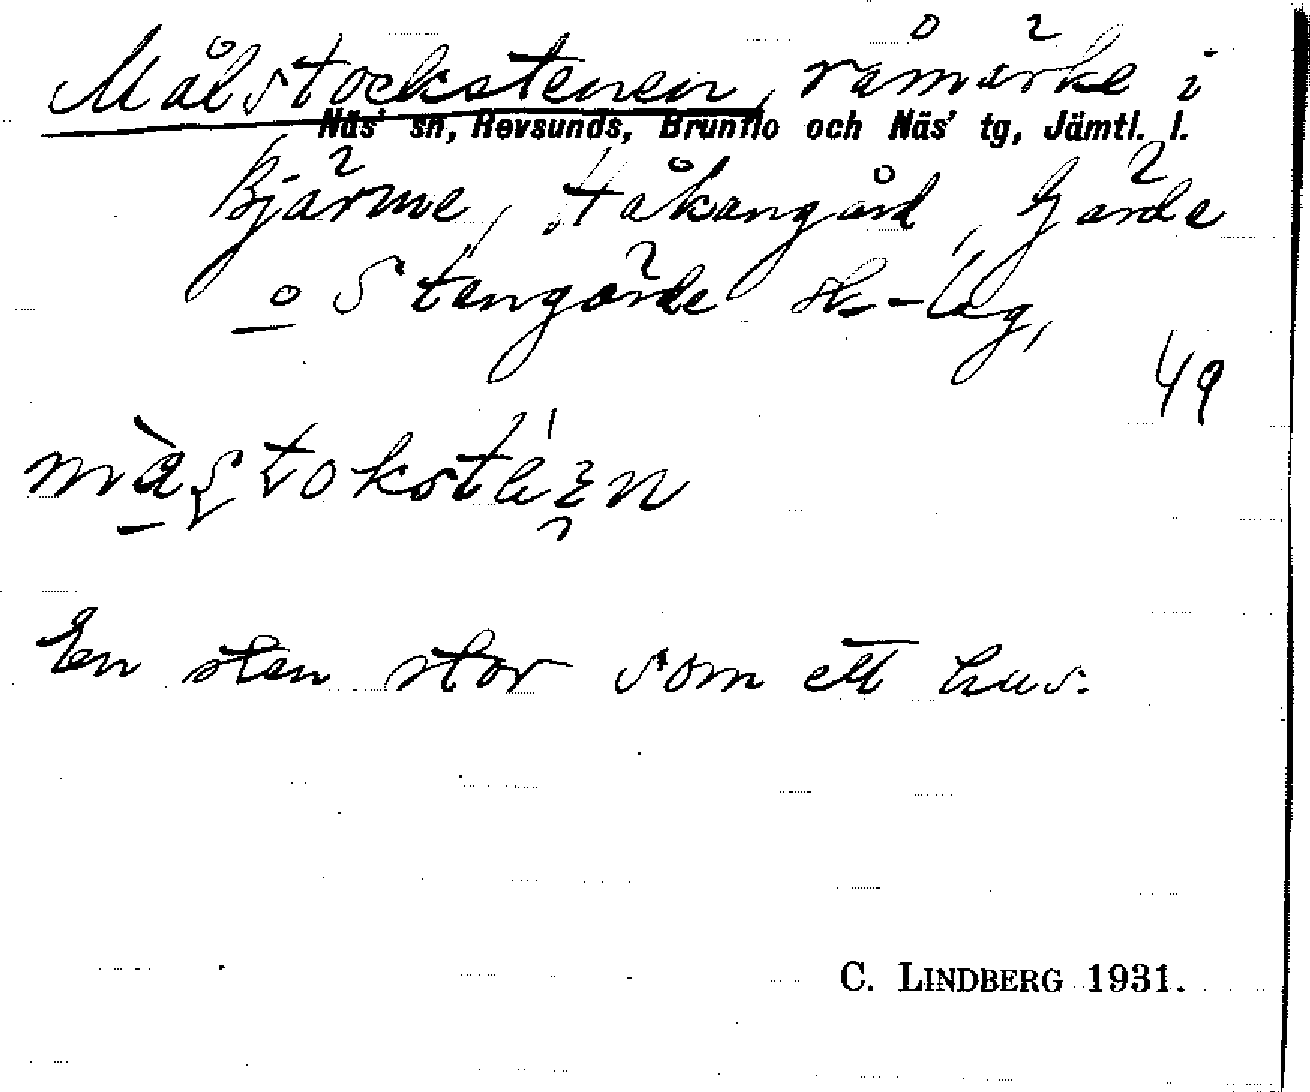 Målstockstenen, råmärke i
Näs' sn, Revsunds, Brunflo och Näs' tg, Jämtl. l.
Bjärme, Håkangård, Gärde
o Stengärde sk-lag,
49
En sten stor som ett hus.
C. LINDBERG 1931.